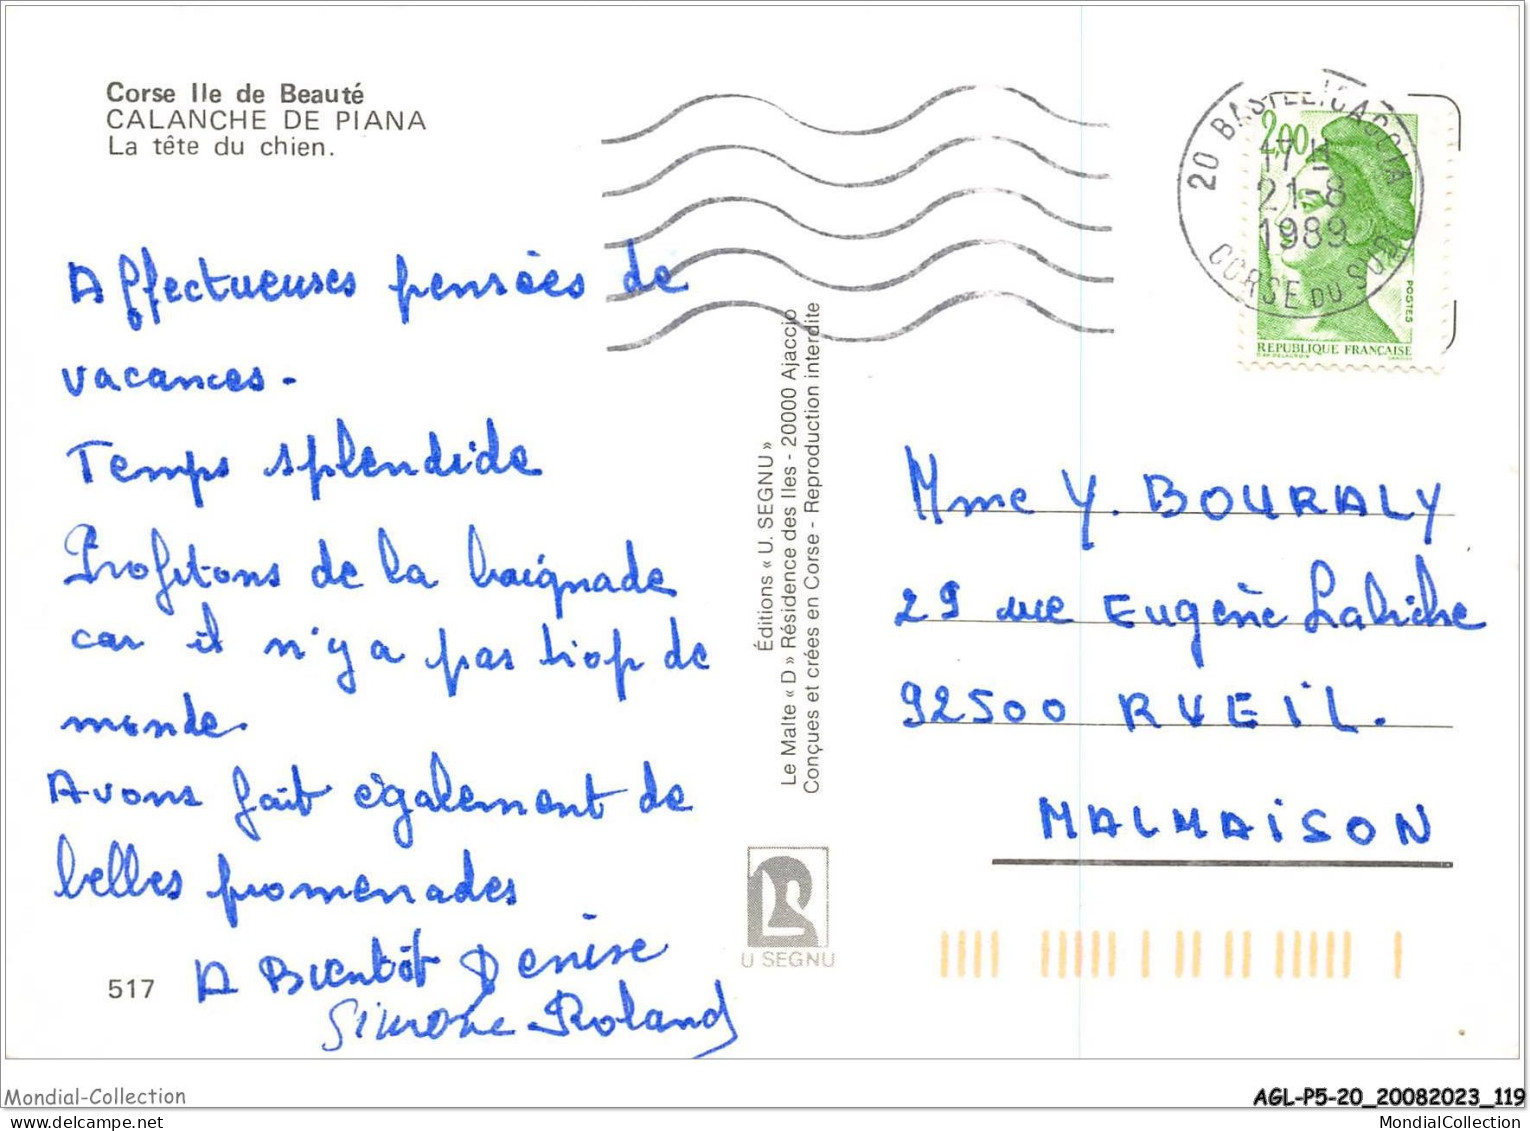 Corse Ile de Beauté
CALANCHE DE PIANA
La tête du chien.
Affectueuses pensées de
vacances -
Temps splendide
Profitons de la baignade
car il n'y a pas trop de
monde.
Avons fait également de
belles promenades
A Bientôt Denise
Simone Roland
517
Éditions « U. SEGNU »
Le Malte « D » Résidence des Iles - 20000 Ajaccio
Conçues et crées en Corse - Reproduction interdite
U SEGNU
20 BASTELICACCIA
17 H
21-8
1989
CORSE DU SUD
2,00
POSTES
REPUBLIQUE FRANÇAISE
Mme Y. BOURALY
29 rue Eugène Labiche
92500 RUEIL.
MALMAISON
Mondial-Collection
AGL-P5-20_20082023_119
www.delcampe.net
MondialCollection